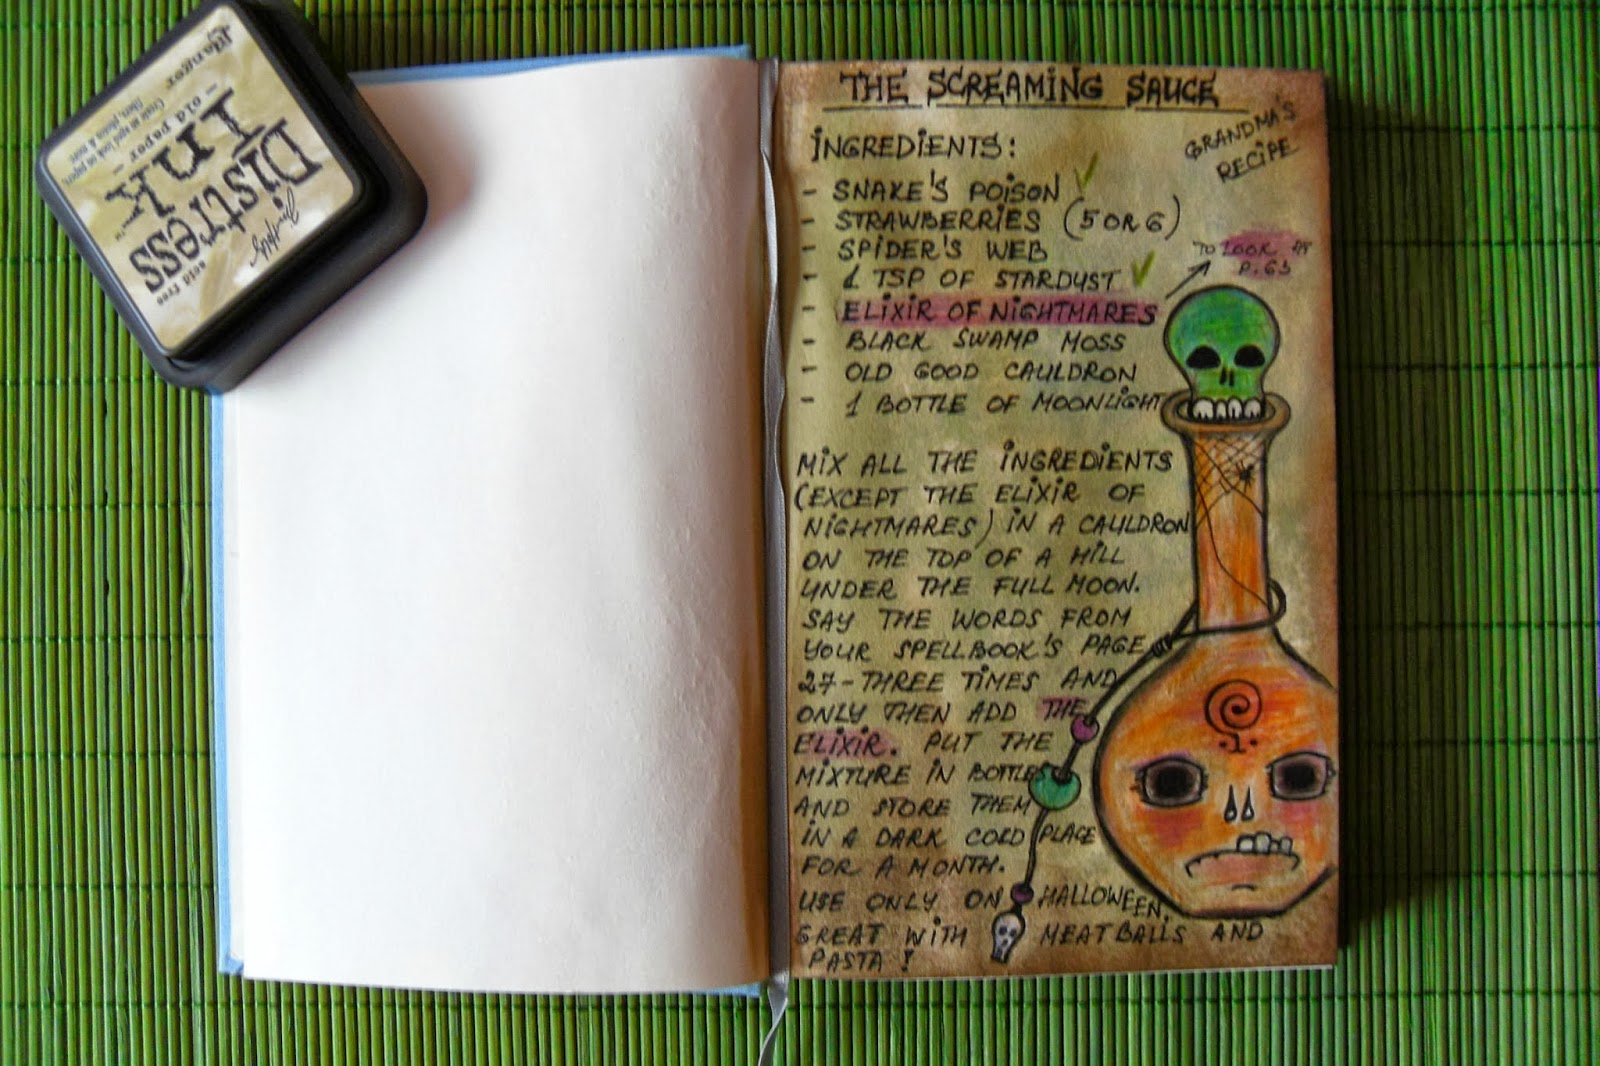 Ranger
- old paper -
Distress
Ink
acid free
THE SCREAMING SAUCE
GRANDMA'S
RECIPE
INGREDIENTS:
- SNAKE'S POISON ✓
- STRAWBERRIES (5 OR 6)
- SPIDER'S WEB
- 1 TSP OF STARDUST ✓
- ELIXIR OF NIGHTMARES
TO LOOK AT
P. 63
- BLACK SWAMP MOSS
- OLD GOOD CAULDRON
- 1 BOTTLE OF MOONLIGHT
MIX ALL THE INGREDIENTS
(EXCEPT THE ELIXIR OF
NIGHTMARES) IN A CAULDRON
ON THE TOP OF A HILL
UNDER THE FULL MOON.
SAY THE WORDS FROM
YOUR SPELLBOOK'S PAGE
27-THREE TIMES AND
ONLY THEN ADD THE
ELIXIR. PUT THE
MIXTURE IN BOTTLES
AND STORE THEM
IN A DARK COLD PLACE
FOR A MONTH.
USE ONLY ON HALLOWEEN.
GREAT WITH MEATBALLS AND
PASTA!